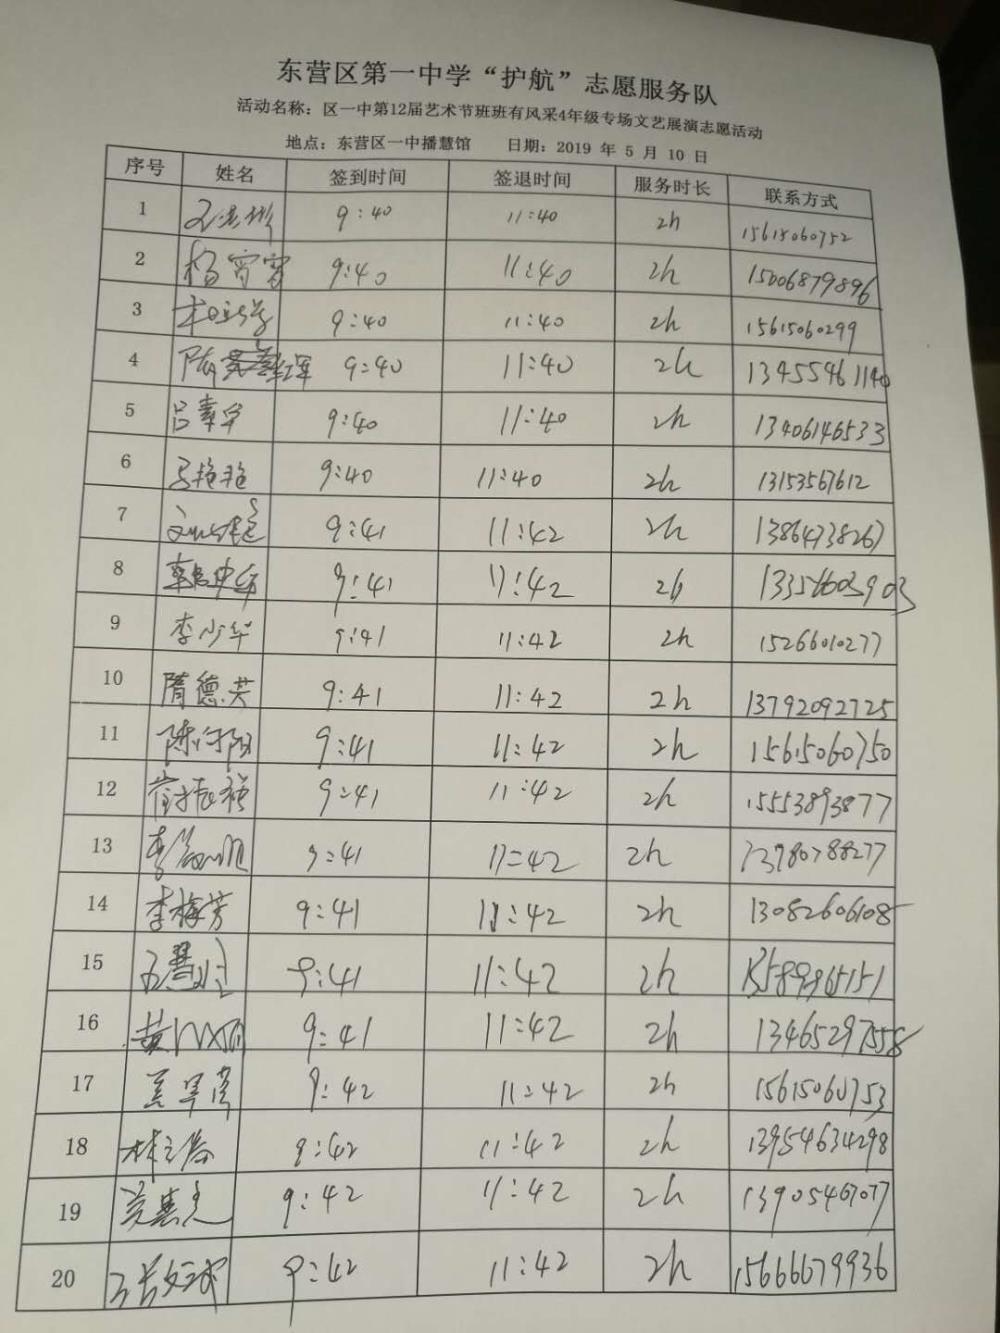 东营区第一中学“护航”志愿服务队
活动名称：区一中第12届艺术节班班有风采4年级专场文艺展演志愿活动
地点：东营区一中播慧馆 日期：2019 年 5 月 10 日
序号 姓名 签到时间 签退时间 服务时长 联系方式
1 9:40 11:40 2h 15615060752
2 杨霄霄 9:40 11:40 2h 15006879896
3 9:40 11:40 2h 15615060299
4 9:40 11:40 2h 13455461140
5 吕素军 9:40 11:40 2h 13406146533
6 马艳艳 9:40 11:40 2h 13153567612
7 9:41 11:42 2h 13864738267
8 9:41 11:42 2h 13356603903
9 李少华 9:41 11:42 2h 15266010277
10 隋德芙 9:41 11:42 2h 13792092725
11 9:41 11:42 2h 15615060750
12 9:41 11:42 2h 15553893877
13 9:41 11:42 2h 13780788277
14 李梅芳 9:41 11:42 2h 13082606108
15 9:41 11:42 2h 13589965151
16 9:41 11:42 2h 13465297558
17 9:42 11:42 2h 15615060753
18 9:42 11:42 2h 13954634298
19 9:42 11:42 2h 13905467077
20 9:42 11:42 2h 15666679936